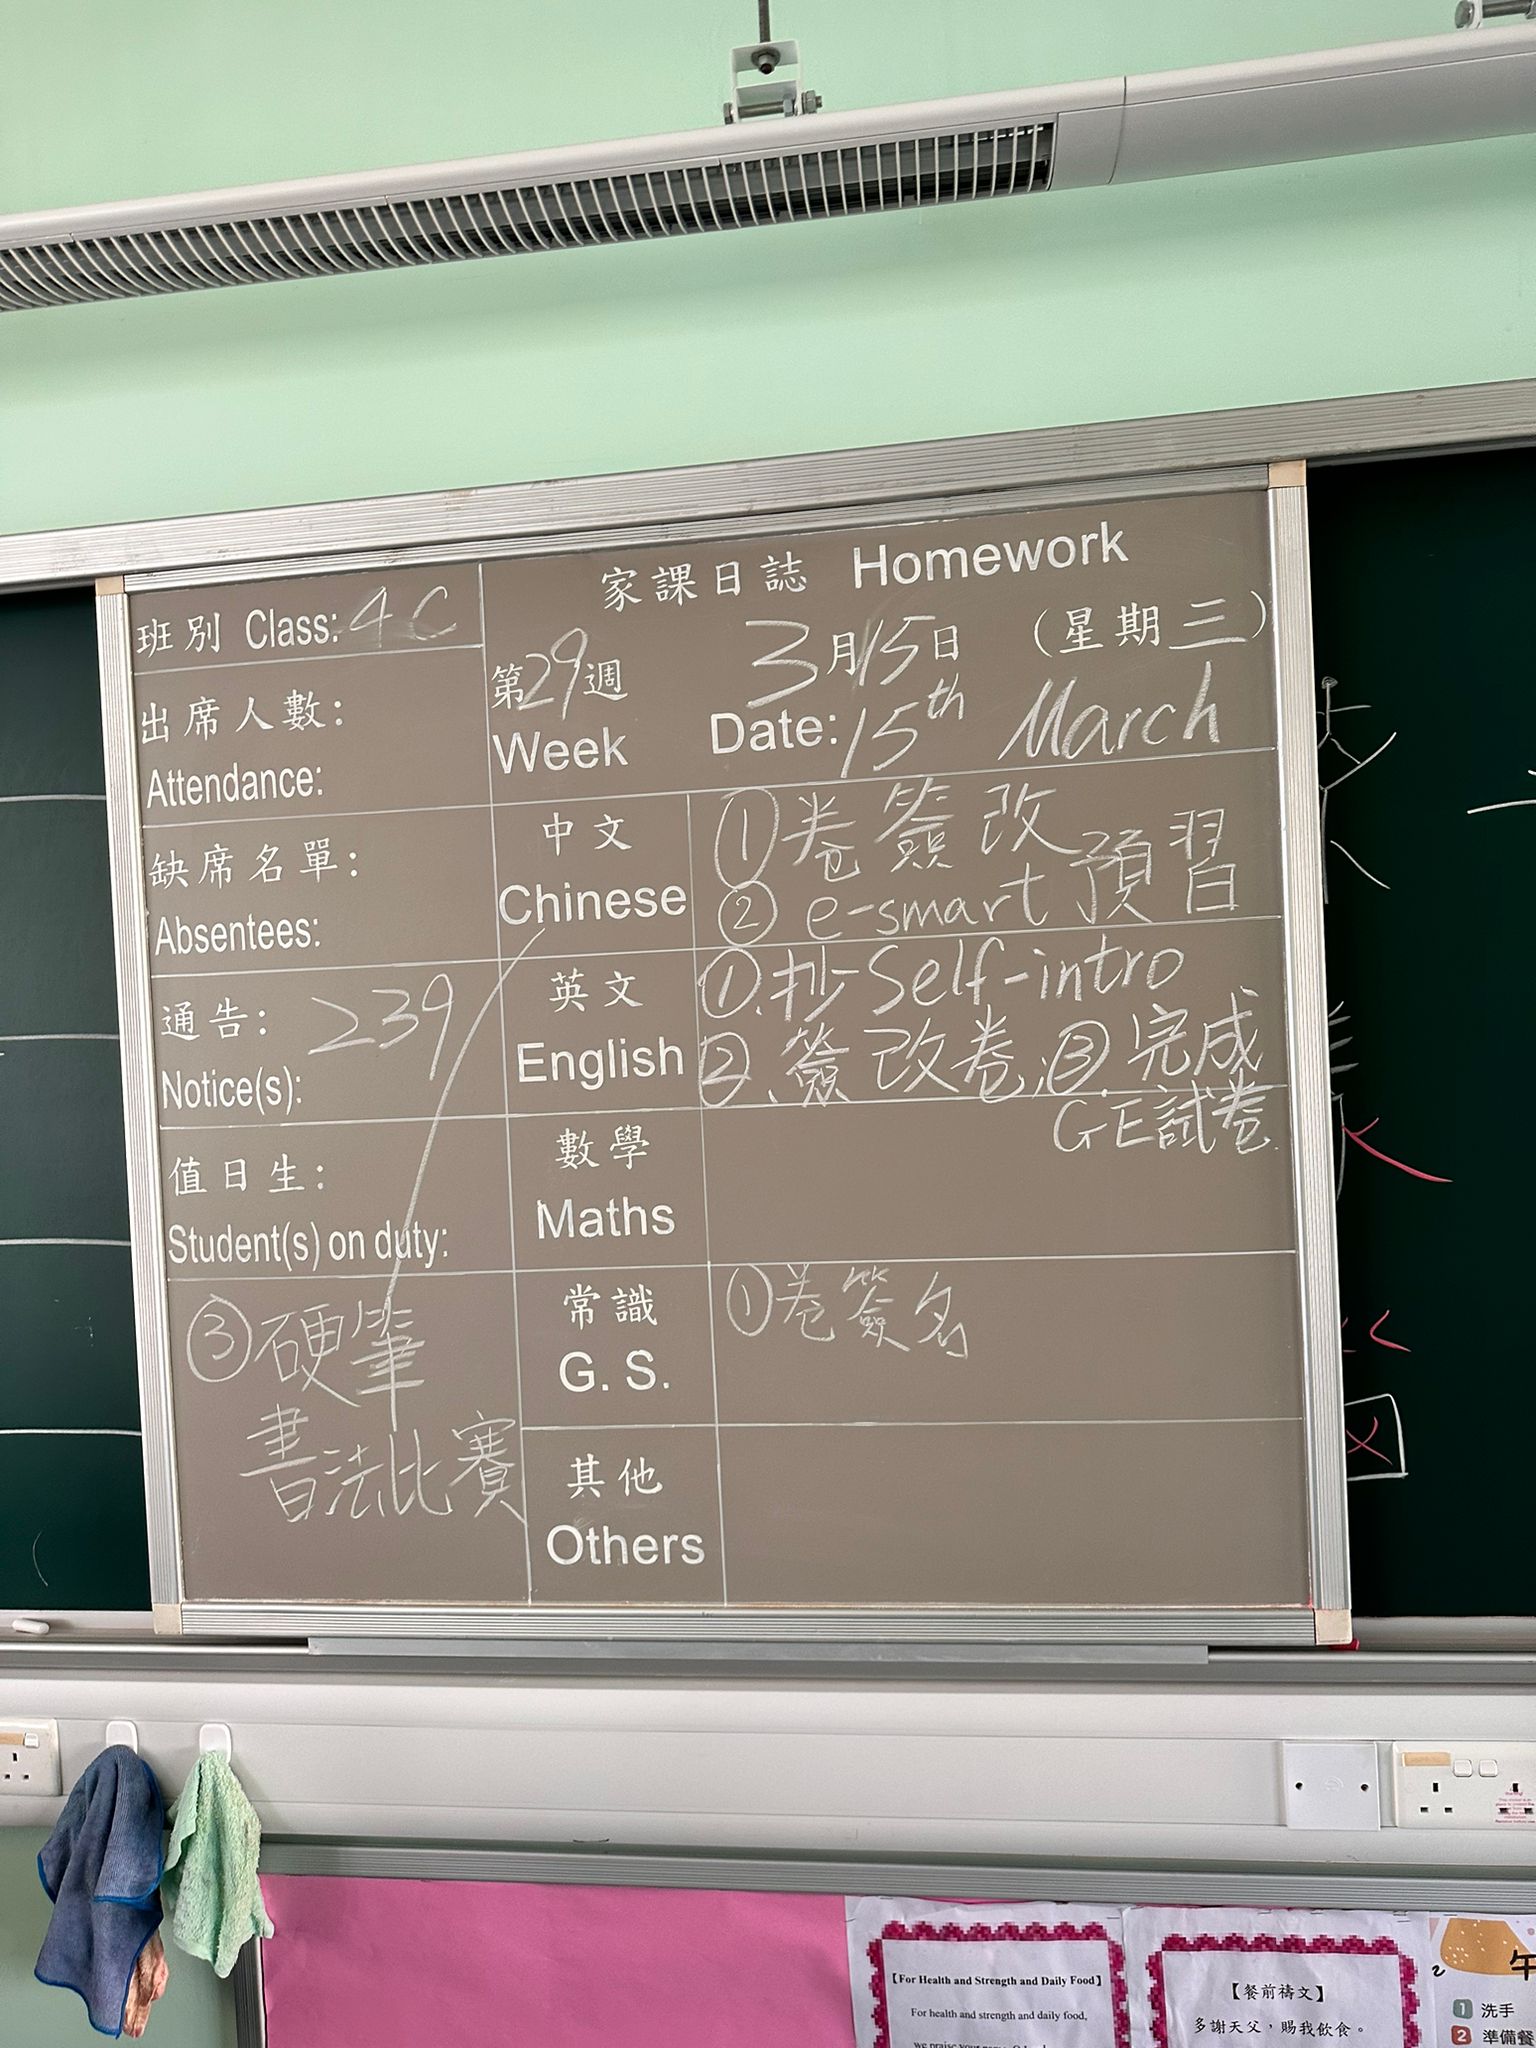 家課日誌 Homework
班別 Class: 4C
第29週
Week
3月15日 (星期三)
Date: 15th March
出席人數:
Attendance:
缺席名單:
Absentees:
通告: 239
Notice(s):
值日生:
Student(s) on duty:
③硬筆
書法比賽
中文
Chinese
①卷簽改
② e-smart 預習
英文
English
①.抄 Self-intro
②、簽改卷;③.完成
GE試卷.
數學
Maths
常識
G. S.
①卷簽名
其他
Others
【For Health and Strength and Daily Food】
For health and strength and daily food,
【餐前禱文】
多謝天父,賜我飲食。
午
1 洗手
2 準備餐